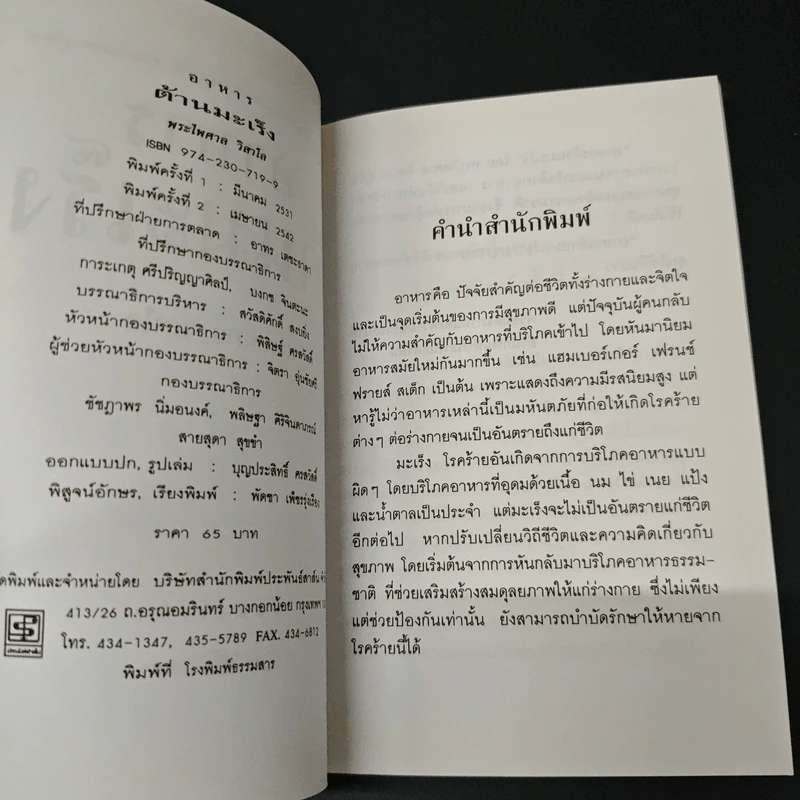 อาหาร
ต้านมะเร็ง
พระไพศาล วิสาโล
ISBN 974-230-719-9
พิมพ์ครั้งที่ 1 : มีนาคม 2531
พิมพ์ครั้งที่ 2 : เมษายน 2542
ที่ปรึกษาฝ่ายการตลาด : อาทร เตชะธาดา
ที่ปรึกษากองบรรณาธิการ
การะเกตุ ศรีปริญญาศิลป์, บงกช จินตะนะ
บรรณาธิการบริหาร : สวัสดิศักดิ์ สงบยิ่ง
หัวหน้ากองบรรณาธิการ : พิสิษฐ์ ศรสวัสดิ์
ผู้ช่วยหัวหน้ากองบรรณาธิการ : จิตรา อุ่นชัยศรี
กองบรรณาธิการ
ชัชฎาพร นิ่มอนงค์, พลิษฐา ศิริจินดาภรณ์
สายสุดา สุขขำ
ออกแบบปก, รูปเล่ม : บุญประสิทธิ์ ศรสวัสดิ์
พิสูจน์อักษร, เรียงพิมพ์ : พัดชา เพ็ชรรุ่งเรือง
ราคา 65 บาท
ดพิมพ์และจำหน่ายโดย บริษัทสำนักพิมพ์ประพันธ์สาส์น
413/26 ถ.อรุณอมรินทร์ บางกอกน้อย กรุงเทพฯ
โทร. 434-1347, 435-5789 FAX. 434-6812
พิมพ์ที่ โรงพิมพ์ธรรมสาร
คำนำสำนักพิมพ์
อาหารคือ ปัจจัยสำคัญต่อชีวิตทั้งร่างกายและจิตใจ
และเป็นจุดเริ่มต้นของการมีสุขภาพดี แต่ปัจจุบันผู้คนกลับ
ไม่ให้ความสำคัญกับอาหารที่บริโภคเข้าไป โดยหันมานิยม
อาหารสมัยใหม่กันมากขึ้น เช่น แฮมเบอร์เกอร์ เฟรนช์
ฟรายส์ สเต็ก เป็นต้น เพราะแสดงถึงความมีรสนิยมสูง แต่
หารู้ไม่ว่าอาหารเหล่านี้เป็นมหันตภัยที่ก่อให้เกิดโรคร้าย
ต่างๆ ต่อร่างกายจนเป็นอันตรายถึงแก่ชีวิต
มะเร็ง โรคร้ายอันเกิดจากการบริโภคอาหารแบบ
ผิดๆ โดยบริโภคอาหารที่อุดมด้วยเนื้อ นม ไข่ เนย แป้ง
และน้ำตาลเป็นประจำ แต่มะเร็งจะไม่เป็นอันตรายแก่ชีวิต
อีกต่อไป หากปรับเปลี่ยนวิถีชีวิตและความคิดเกี่ยวกับ
สุขภาพ โดยเริ่มต้นจากการหันกลับมาบริโภคอาหารธรรม-
ชาติ ที่ช่วยเสริมสร้างสมดุลยภาพให้แก่ร่างกาย ซึ่งไม่เพียง
แต่ช่วยป้องกันเท่านั้น ยังสามารถบำบัดรักษาให้หายจาก
โรคร้ายนี้ได้